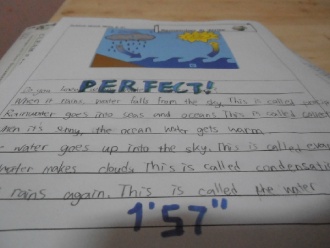 Do you know
PERFECT!
When it rains, water falls from the sky. This is called
Rainwater goes into seas and oceans. This is called
When it's sunny, the ocean water gets warm.
water goes up into the sky. This is called
water makes cloudy. This is called condensati
rains again. This is called the water
1'57"